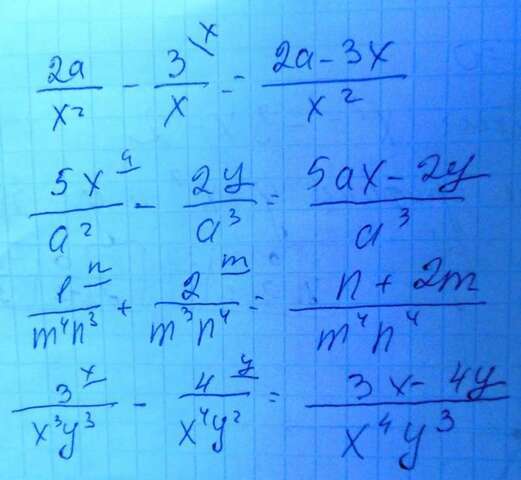 2a/x² - 3\x/x = (2a-3x)/x²
5x\a/a² - 2y/a³ = (5ax-2y)/a³
1\n/m⁴n³ + 2\m/m³n⁴ = (n+2m)/m⁴n⁴
3\x/x³y³ - 4\y/x⁴y² = (3x-4y)/x⁴y³